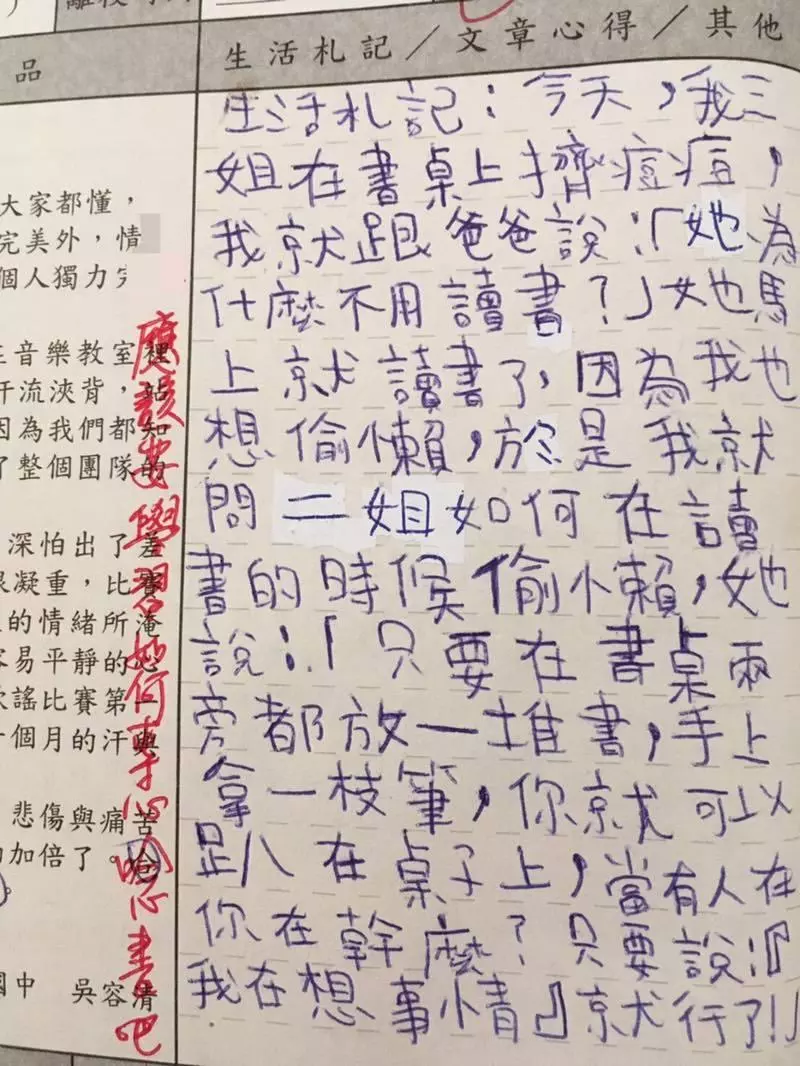 品
生活札記／文章心得／其他
大家都懂，
完美外，情
個人獨力
音樂教室裡
汗流浹背，站
因為我們都知
了整個團隊的
深怕出了差
很凝重，比賽
的情緒所淹
容易平靜的心
歌謠比賽第一
個月的汗與
悲傷與痛苦
加倍了。
國中 吳容清
應該要學習如何專心唸書吧
生活札記：今天，我三
姐在書桌上擠痘痘，
我就跟爸爸說：「她為
什麼不用讀書？」她馬
上就讀書了，因為我也
想偷懶，於是我就
問二姐如何在讀
書的時候偷懶，她
說：「只要在書桌兩
旁都放一堆書，手上
拿一枝筆，你就可以
趴在桌子上，當有人在
你在幹麼？只要說：『
我在想事情』就行了！」